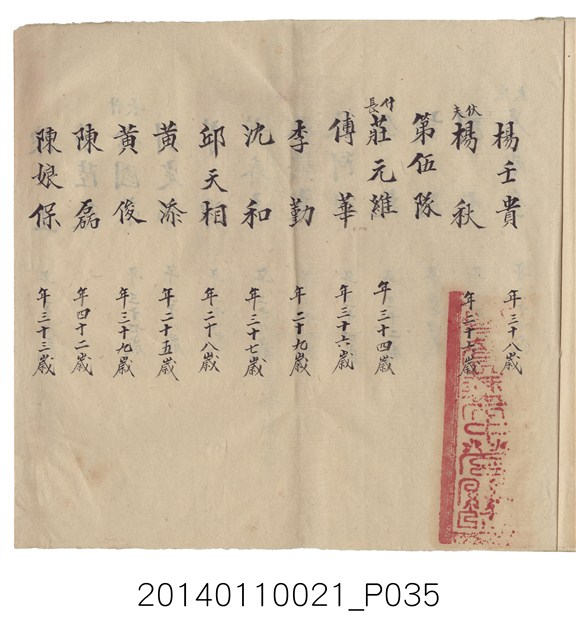 楊壬貴 年三十八歲
伙夫 楊秋 年二十七歲
第伍隊
什長 莊元維 年三十四歲
傅華 年三十六歲
李勤 年二十九歲
沈和 年三十七歲
邱天相 年二十八歲
黃添 年二十五歲
黃國俊 年三十九歲
陳磊 年四十二歲
陳娘保 年三十三歲
20140110021_P035